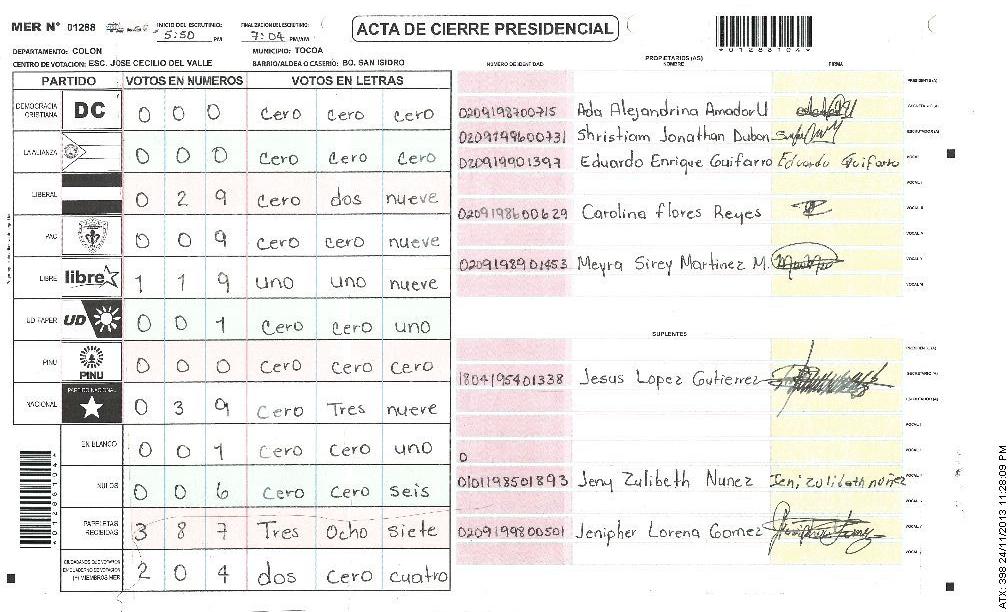 MER N° 01288 INICIO DEL ESCRUTINIO: 5:50 PM FINALIZACION DEL ESCRUTINIO: 7:04 PM/AM
ACTA DE CIERRE PRESIDENCIAL
*01286104*
DEPARTAMENTO: COLON MUNICIPIO: TOCOA
CENTRO DE VOTACION: ESC. JOSE CECILIO DEL VALLE BARRIO/ALDEA O CASERIO: BO. SAN ISIDRO
PARTIDO VOTOS EN NUMEROS VOTOS EN LETRAS
DEMOCRACIA CRISTIANA DC 0 0 0 cero cero cero
LA ALIANZA 0 0 0 cero cero cero
LIBERAL 0 2 9 cero dos nueve
PAC 0 0 9 cero cero nueve
LIBRE libre 1 1 9 uno uno nueve
UD FAPER UD 0 0 1 cero cero uno
PINU PINU 0 0 0 cero cero cero
NACIONAL PARTIDO NACIONAL 0 3 9 cero Tres nueve
EN BLANCO 0 0 1 cero cero uno
NULOS 0 0 6 cero cero seis
PAPELETAS RECIBIDAS 3 8 7 Tres Ocho siete
CIUDADANOS QUE VOTARON EN CUADERNO DE VOTACION (+) MIEMBROS MER 2 0 4 dos cero cuatro
PROPIETARIOS (AS)
NUMERO DE IDENTIDAD NOMBRE FIRMA
PRESIDENTE (A)
0209198700715 Ada Alejandrina Amador U SECRETARIO (A)
0209199600731 Shristiam Jonathan Dubon ESCRUTADOR (A)
020919901397 Eduardo Enrique Guifarro Eduardo Guifarro VOCAL I
0209198600629 Carolina flores Reyes
0209198901453 Meyra Sirey Martinez M.
SUPLENTES
PRESIDENTE (A)
1804195401338 Jesus Lopez Gutierrez SECRETARIO (A)
ESCRUTADOR (A)
0
0101198501893 Jeny Zulibeth Nunez Jeni zulibeth nuñez
0209199800501 Jenipher Lorena Gomez
ATX: 398 24/11/2013 11:28:09 PM